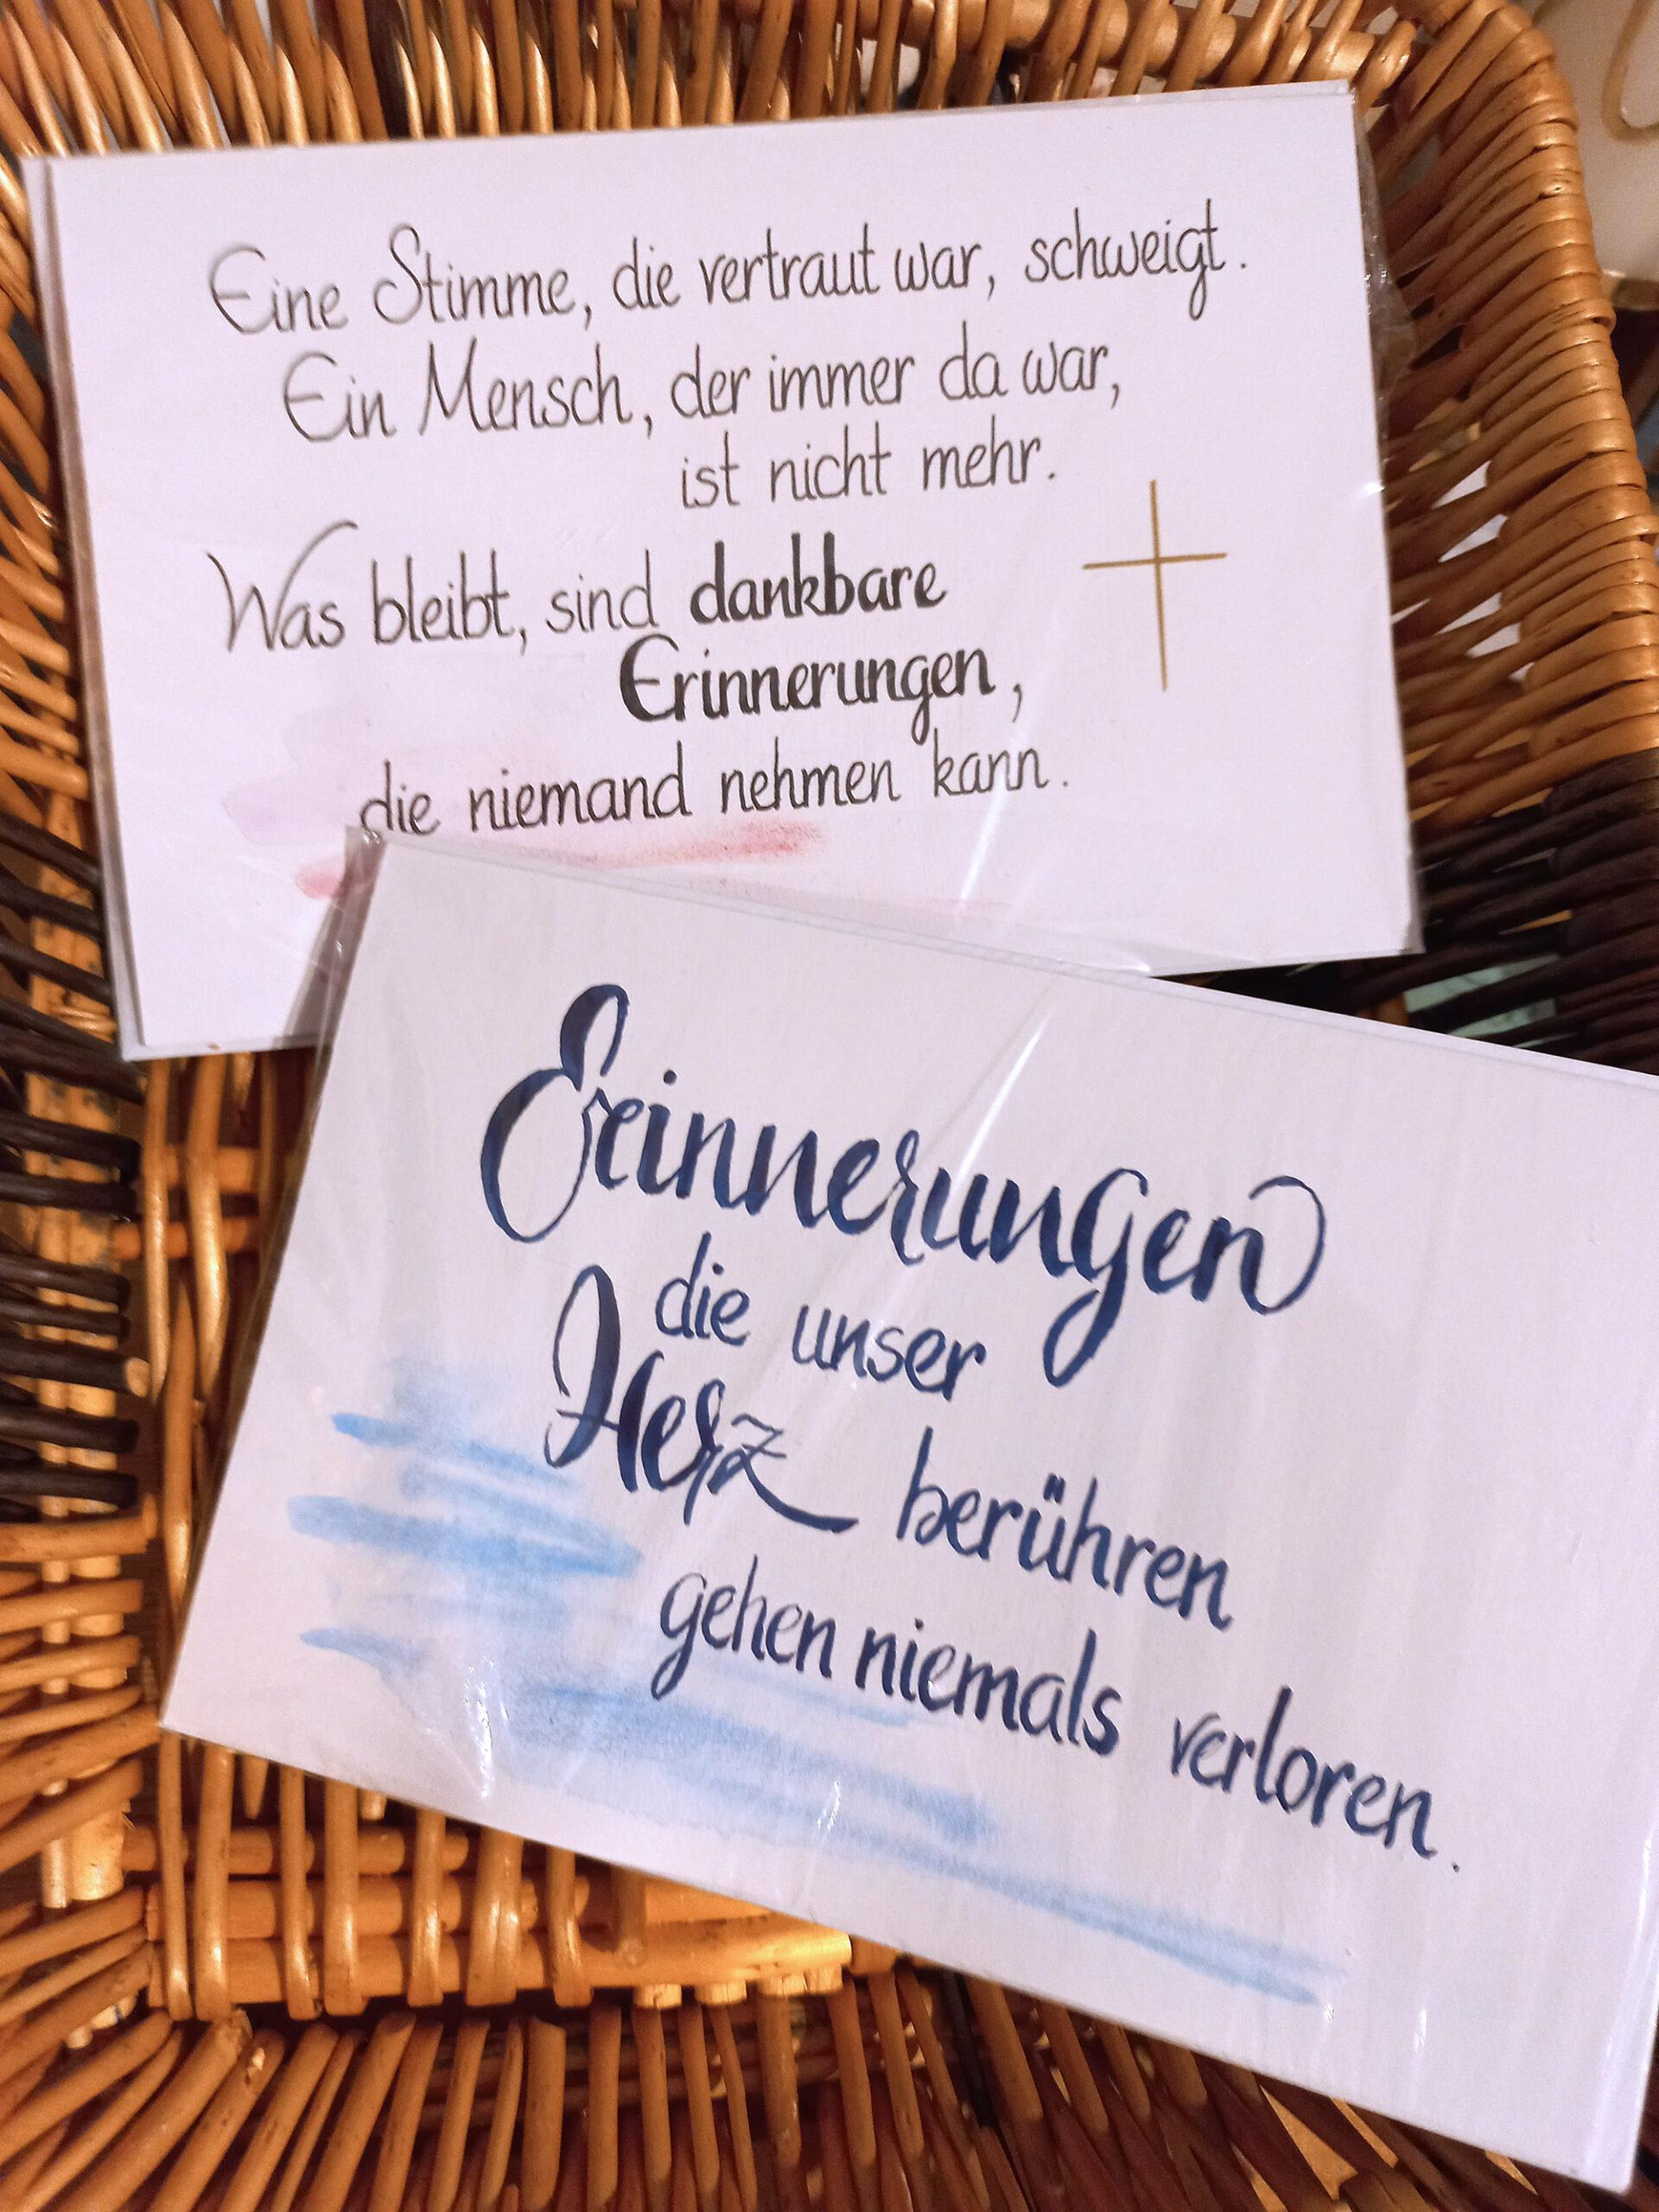 Eine Stimme, die vertraut war, schweigt.
Ein Mensch, der immer da war,
ist nicht mehr.
Was bleibt, sind dankbare
Erinnerungen,
die niemand nehmen kann.
Erinnerungen
die unser
Herz berühren
gehen niemals verloren.